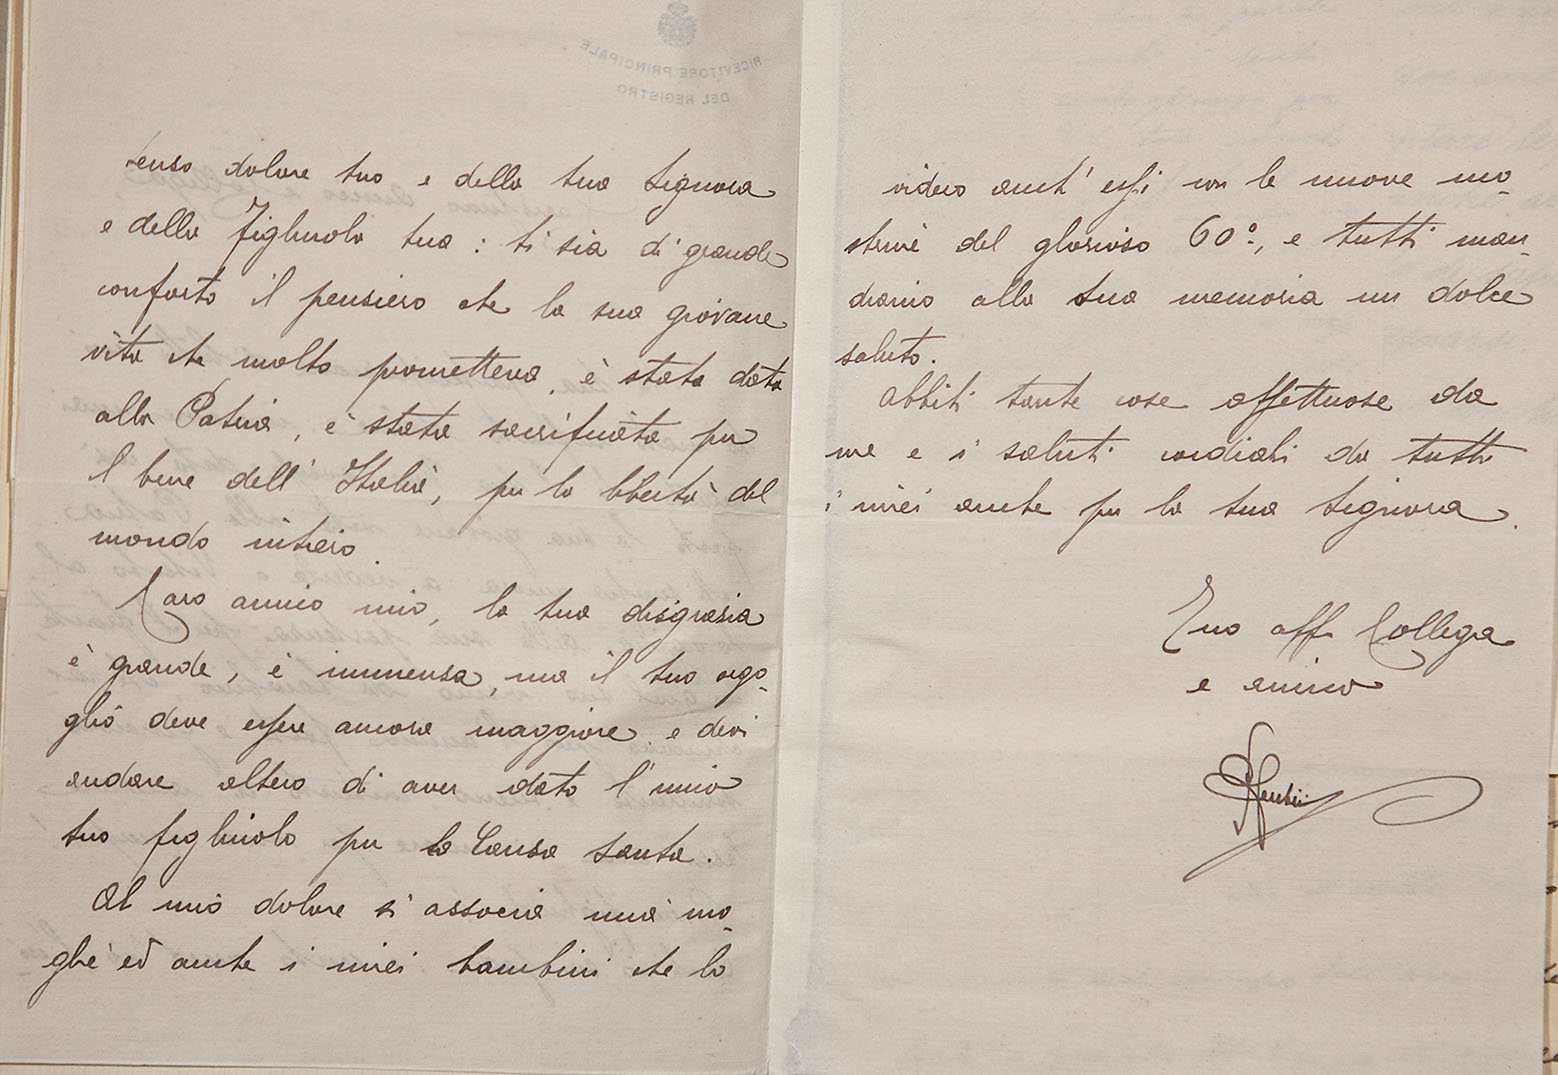 RICEVITORE PRINCIPALE
DEL REGISTRO
tenso dolore tuo e della tua Signora
e della Figliuola tua: ti sia di grande
conforto il pensiero che la sua giovane
vita che molto prometteva, è stata data
alla Patria, è stata sacrificata per
il bene dell'Italia, per la libertà del
mondo intiero
Caro amico mio, la tua disgrazia
è grande, è immensa, ma il tuo orgo-
glio deve essere ancora maggiore e devi
andare altero di aver dato l'unico
tuo figliuolo per la Causa santa.
Al mio dolore si associa mia mo-
glie ed anche i miei bambini che lo
videro anch'essi con le nuove mo-
strine del glorioso 60°, e tutti man-
diamo alla sua memoria un dolce
saluto.
Abbiti tante cose affettuose da
me e i saluti cordiali da tutti
i miei anche per la tua Signora.
Tuo aff Collega
e amico